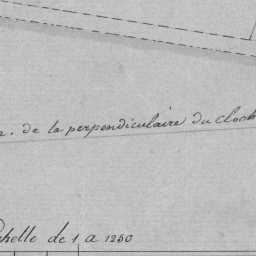 de la perpendiculaire du Cloch
chelle de 1 a 1250